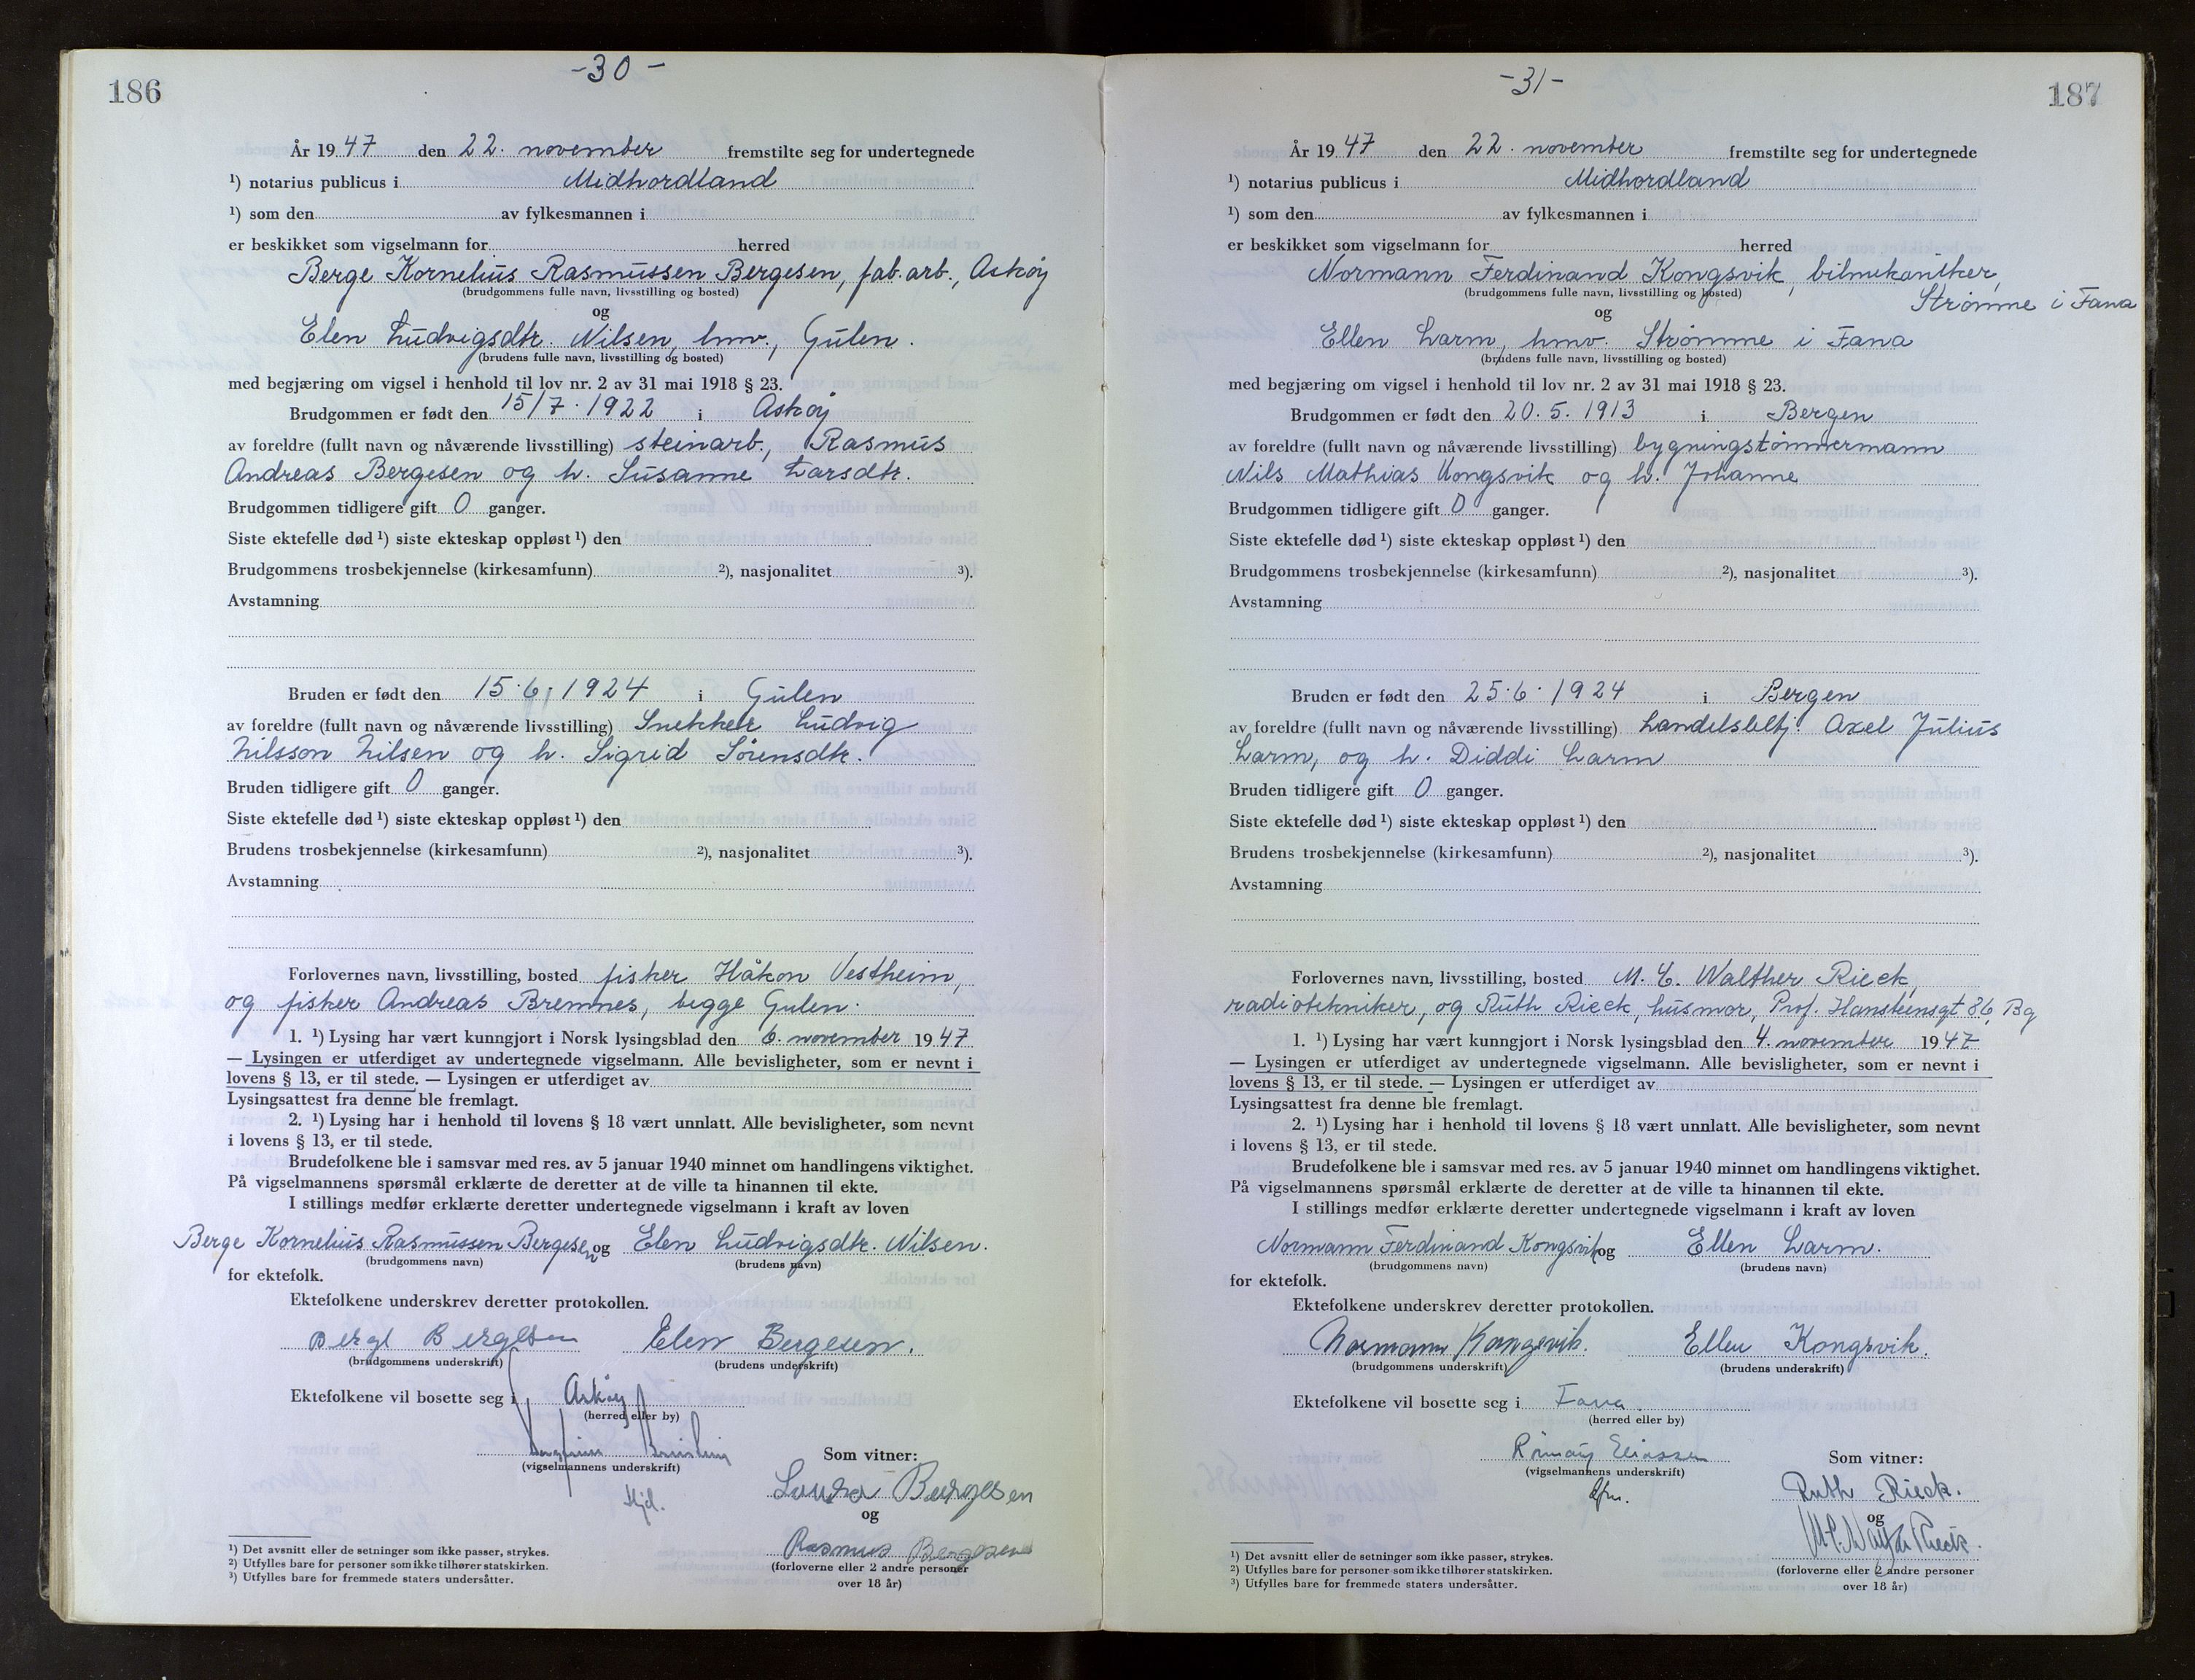 186
-30-
År 1947 den 22. november fremstilte seg for undertegnede
¹) notarius publicus i Midhordland
¹) som den av fylkesmannen i
er beskikket som vigselmann for herred
Berge Kornelius Rasmussen Bergesen, fab.arb., Askøy
(brudgommens fulle navn, livsstilling og bosted)
og
Elen Ludvigsdtr. Nilsen, hmv., Gulen.
(brudens fulle navn, livsstilling og bosted)
med begjæring om vigsel i henhold til lov nr. 2 av 31 mai 1918 § 23.
Brudgommen er født den 15/7. 1922 i Askøy
av foreldre (fullt navn og nåværende livsstilling) steinarb., Rasmus
Andreas Bergesen og h. Susanne Larsdtr.
Brudgommen tidligere gift 0 ganger.
Siste ektefelle død ¹) siste ekteskap oppløst ¹) den
Brudgommens trosbekjennelse (kirkesamfunn) ²), nasjonalitet ³).
Avstamning
Bruden er født den 15.6. 1924 i Gulen
av foreldre (fullt navn og nåværende livsstilling) Snekker Ludvig
Nilsson Nilsen og h. Sigrid Sørensdtr.
Bruden tidligere gift 0 ganger.
Siste ektefelle død ¹) siste ekteskap oppløst ¹) den
Brudens trosbekjennelse (kirkesamfunn) ²), nasjonalitet ³).
Avstamning
Forlovernes navn, livsstilling, bosted fisker Håkon Vestheim,
og fisker Andreas Bremnes, begge Gulen.
1. ¹) Lysing har vært kunngjort i Norsk lysingsblad den 6. november 1947
— Lysingen er utferdiget av undertegnede vigselmann. Alle bevisligheter, som er nevnt i
lovens § 13, er til stede. — Lysingen er utferdiget av
Lysingsattest fra denne ble fremlagt.
2. ¹) Lysing har i henhold til lovens § 18 vært unnlatt. Alle bevisligheter, som nevnt
i lovens § 13, er til stede.
Brudefolkene ble i samsvar med res. av 5 januar 1940 minnet om handlingens viktighet.
På vigselmannens spørsmål erklærte de deretter at de ville ta hinannen til ekte.
I stillings medfør erklærte deretter undertegnede vigselmann i kraft av loven
Berge Kornelius Rasmussen Bergesen og Elen Ludvigsdtr. Nilsen.
(brudgommens navn) (brudens navn)
for ektefolk.
Ektefolkene underskrev deretter protokollen.
Berge Bergesen Elen Bergesen.
(brudgommens underskrift) (brudens underskrift)
Ektefolkene vil bosette seg i Askøy
(herred eller by)
(vigselmannens underskrift)
Som vitner:
Bergesen
og
Rasmus Bergesen
(forloverne eller 2 andre personer
over 18 år)
¹) Det avsnitt eller de setninger som ikke passer, strykes.
²) Utfylles bare for personer som ikke tilhører statskirken.
³) Utfylles bare for fremmede staters undersåtter.
187
-31-
År 1947 den 22. november fremstilte seg for undertegnede
¹) notarius publicus i Midhordland
¹) som den av fylkesmannen i
er beskikket som vigselmann for herred
Normann Ferdinand Kongsvik, bilmekaniker,
Strømme i Fana
(brudgommens fulle navn, livsstilling og bosted)
og
Ellen Larm, hmv. Strømme i Fana
(brudens fulle navn, livsstilling og bosted)
med begjæring om vigsel i henhold til lov nr. 2 av 31 mai 1918 § 23.
Brudgommen er født den 20.5. 1913 i Bergen
av foreldre (fullt navn og nåværende livsstilling) bygningstømmermann
Nils Mathias Kongsvik og h. Johanne
Brudgommen tidligere gift 0 ganger.
Siste ektefelle død ¹) siste ekteskap oppløst ¹) den
Brudgommens trosbekjennelse (kirkesamfunn) ²), nasjonalitet ³).
Avstamning
Bruden er født den 25.6. 1924 i Bergen
av foreldre (fullt navn og nåværende livsstilling) handelsbetj. Axel Julius
Larm, og h. Diddi Larm
Bruden tidligere gift 0 ganger.
Siste ektefelle død ¹) siste ekteskap oppløst ¹) den
Brudens trosbekjennelse (kirkesamfunn) ²), nasjonalitet ³).
Avstamning
Forlovernes navn, livsstilling, bosted M. C. Walther Rieck,
radiotekniker, og Ruth Rieck, husmor, Prof. Hansteensgt 86, Bg
1. ¹) Lysing har vært kunngjort i Norsk lysingsblad den 4. november 1947
— Lysingen er utferdiget av undertegnede vigselmann. Alle bevisligheter, som er nevnt i
lovens § 13, er til stede. — Lysingen er utferdiget av
Lysingsattest fra denne ble fremlagt.
2. ¹) Lysing har i henhold til lovens § 18 vært unnlatt. Alle bevisligheter, som nevnt
i lovens § 13, er til stede.
Brudefolkene ble i samsvar med res. av 5 januar 1940 minnet om handlingens viktighet.
På vigselmannens spørsmål erklærte de deretter at de ville ta hinannen til ekte.
I stillings medfør erklærte deretter undertegnede vigselmann i kraft av loven
Normann Ferdinand Kongsvik og Ellen Larm.
(brudgommens navn) (brudens navn)
for ektefolk.
Ektefolkene underskrev deretter protokollen.
Normann Kongsvik. Ellen Kongsvik.
(brudgommens underskrift) (brudens underskrift)
Ektefolkene vil bosette seg i Fana.
(herred eller by)
Eliassen
(vigselmannens underskrift)
Som vitner:
Ruth Rieck.
og
M.C. Walther Rieck.
(forloverne eller 2 andre personer
over 18 år)
¹) Det avsnitt eller de setninger som ikke passer, strykes.
²) Utfylles bare for personer som ikke tilhører statskirken.
³) Utfylles bare for fremmede staters undersåtter.